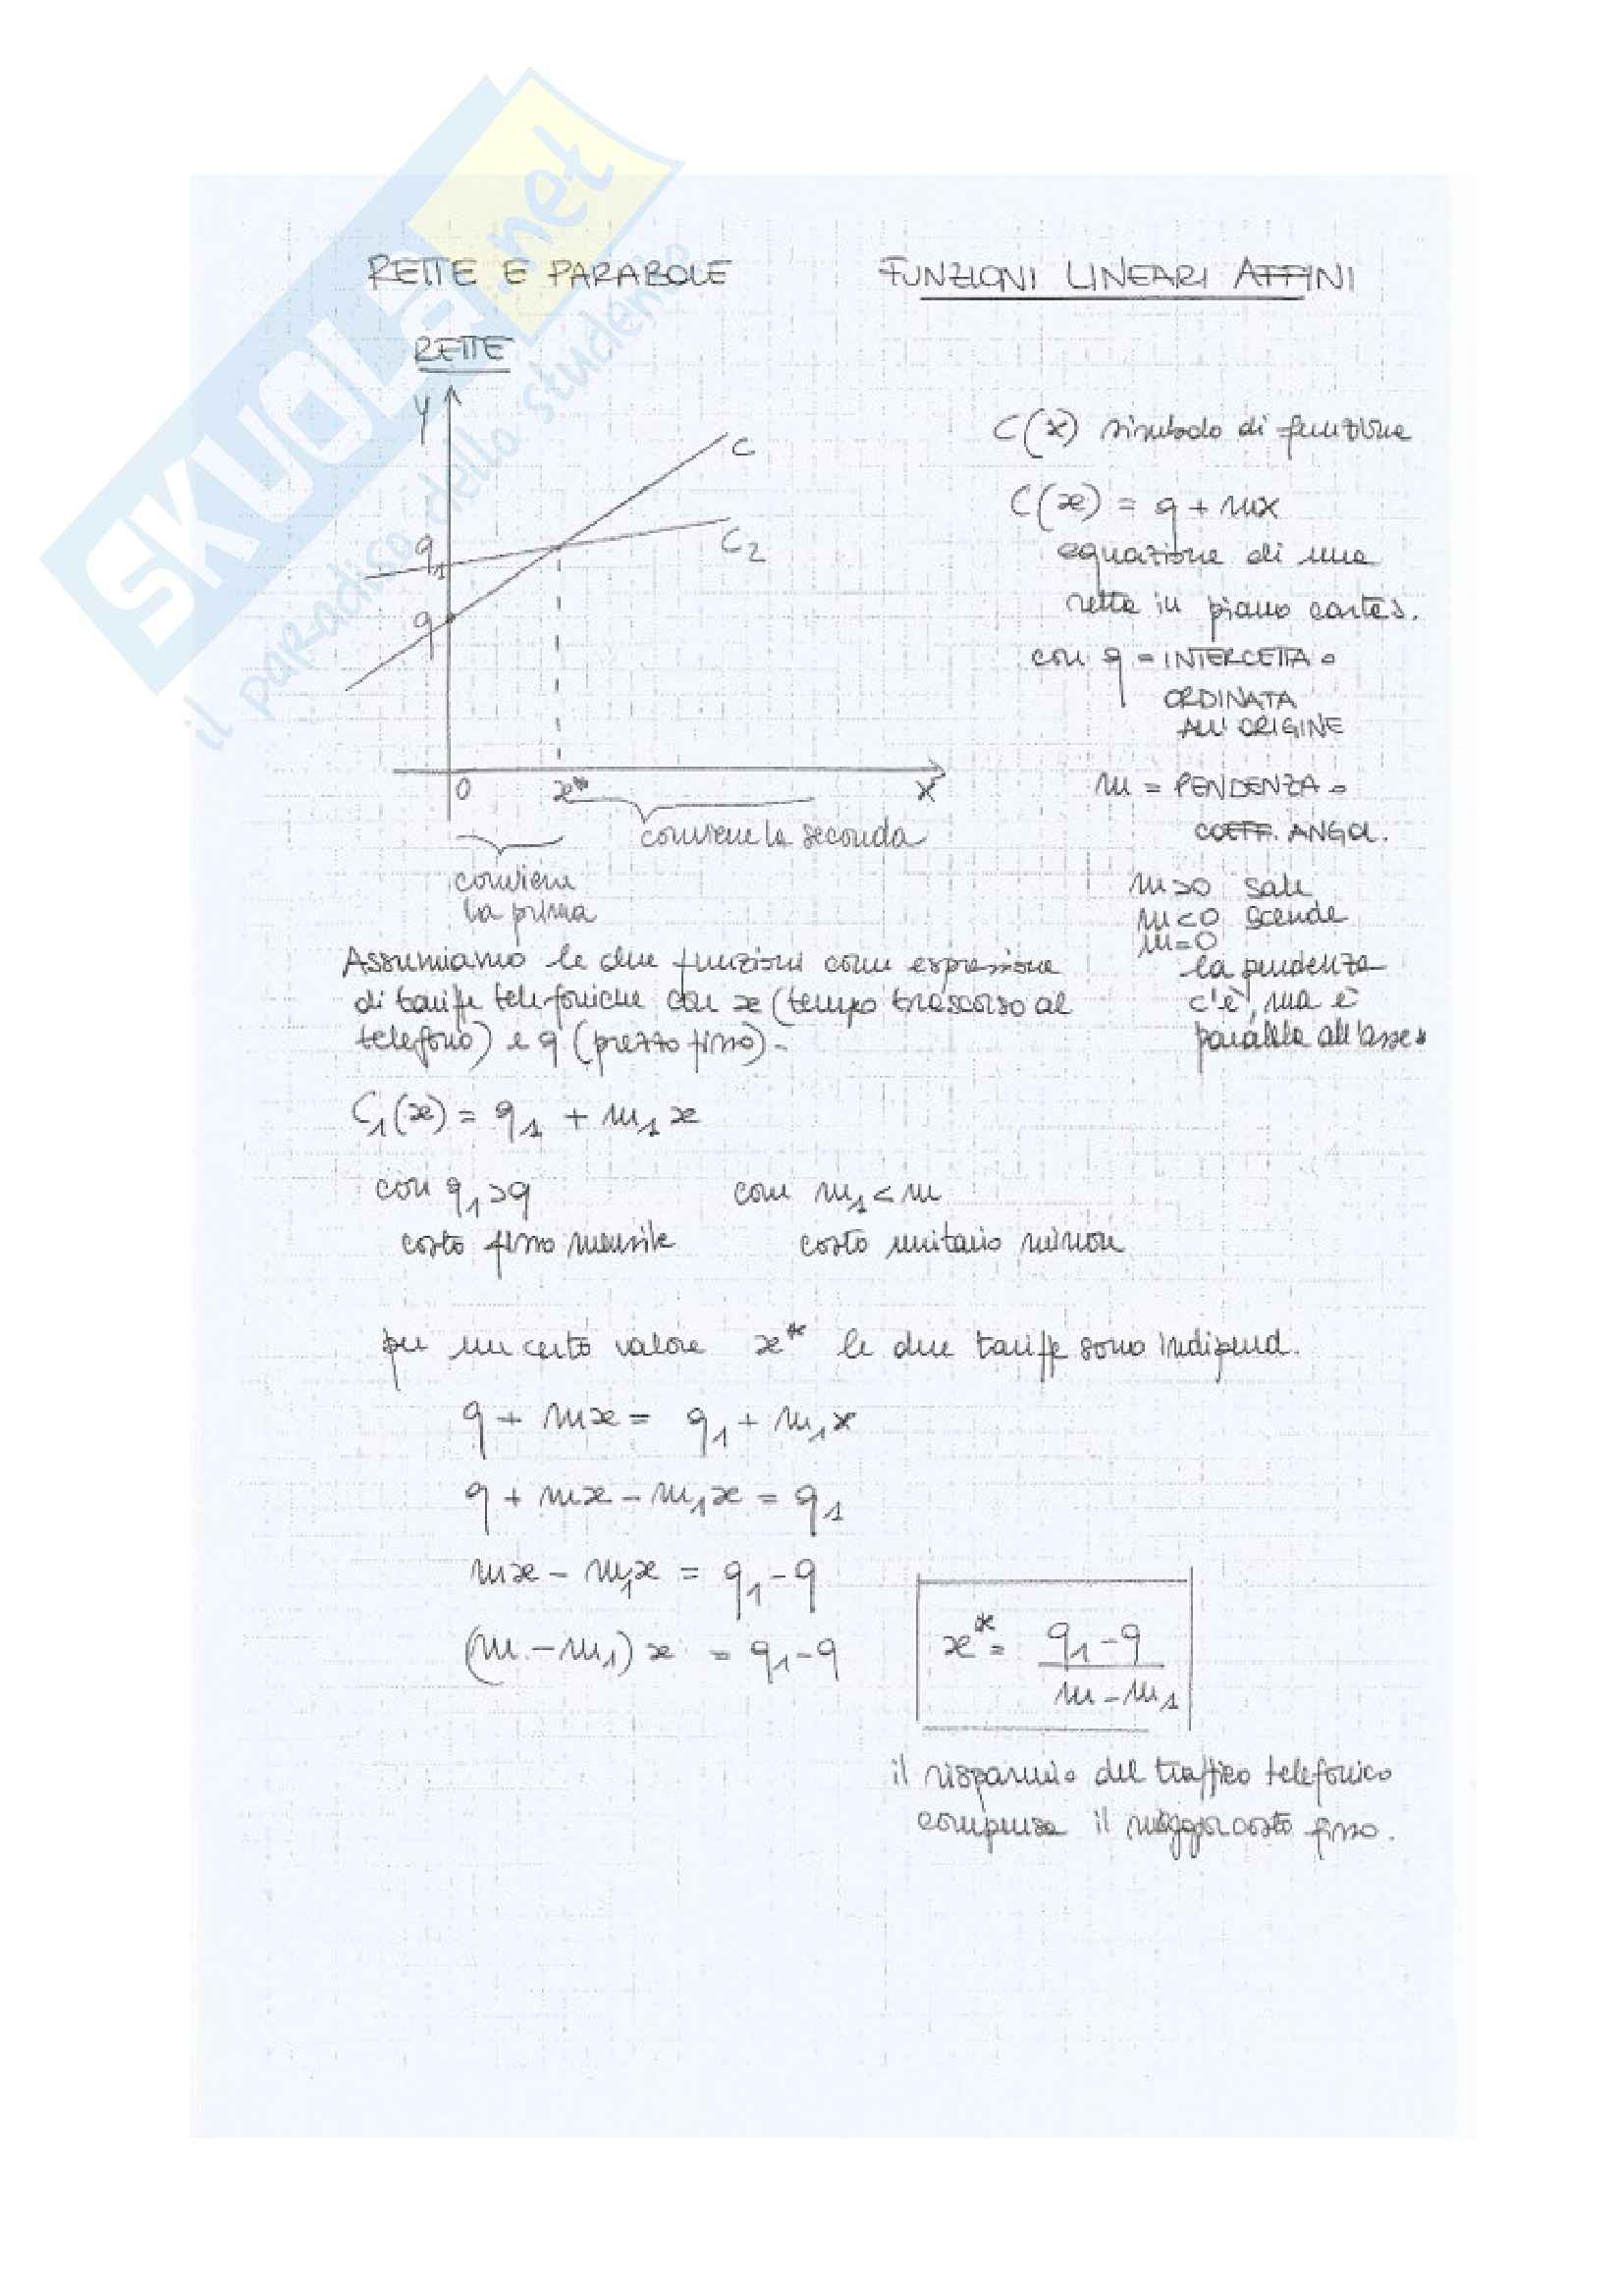 SKUOLA.net
il paradiso dello studente
RETTE E PARABOLE
FUNZIONI LINEARI AFFINI
RETTE
y
C
C2
q1
q
0
x*
x
conviene la seconda
conviene
la prima
C(x) simbolo di funzione
C(x) = q + mx
equazione di una
retta in piano cartes.
con q = INTERCETTA o
ORDINATA
ALL'ORIGINE
m = PENDENZA o
COEFF. ANGOL.
m>0 sale
m<0 scende
m=0
la pendenza
c'è, ma è
parallela all'asse x
Assumiamo le due funzioni come espressione
di tariffe telefoniche con x (tempo trascorso al
telefono) e q (prezzo fisso).
C1(x) = q1 + m1 x
con q1>q
com m1 < m
costo fisso mensile
costo unitario minore
per un certo valore x* le due tariffe sono indipend.
q + mx = q1 + m1x
q + mx - m1x = q1
mx - m1x = q1-q
(m-m1) x = q1-q
x* = q1-q
m-m1
il risparmio del traffico telefonico
compensa il maggior costo fisso.